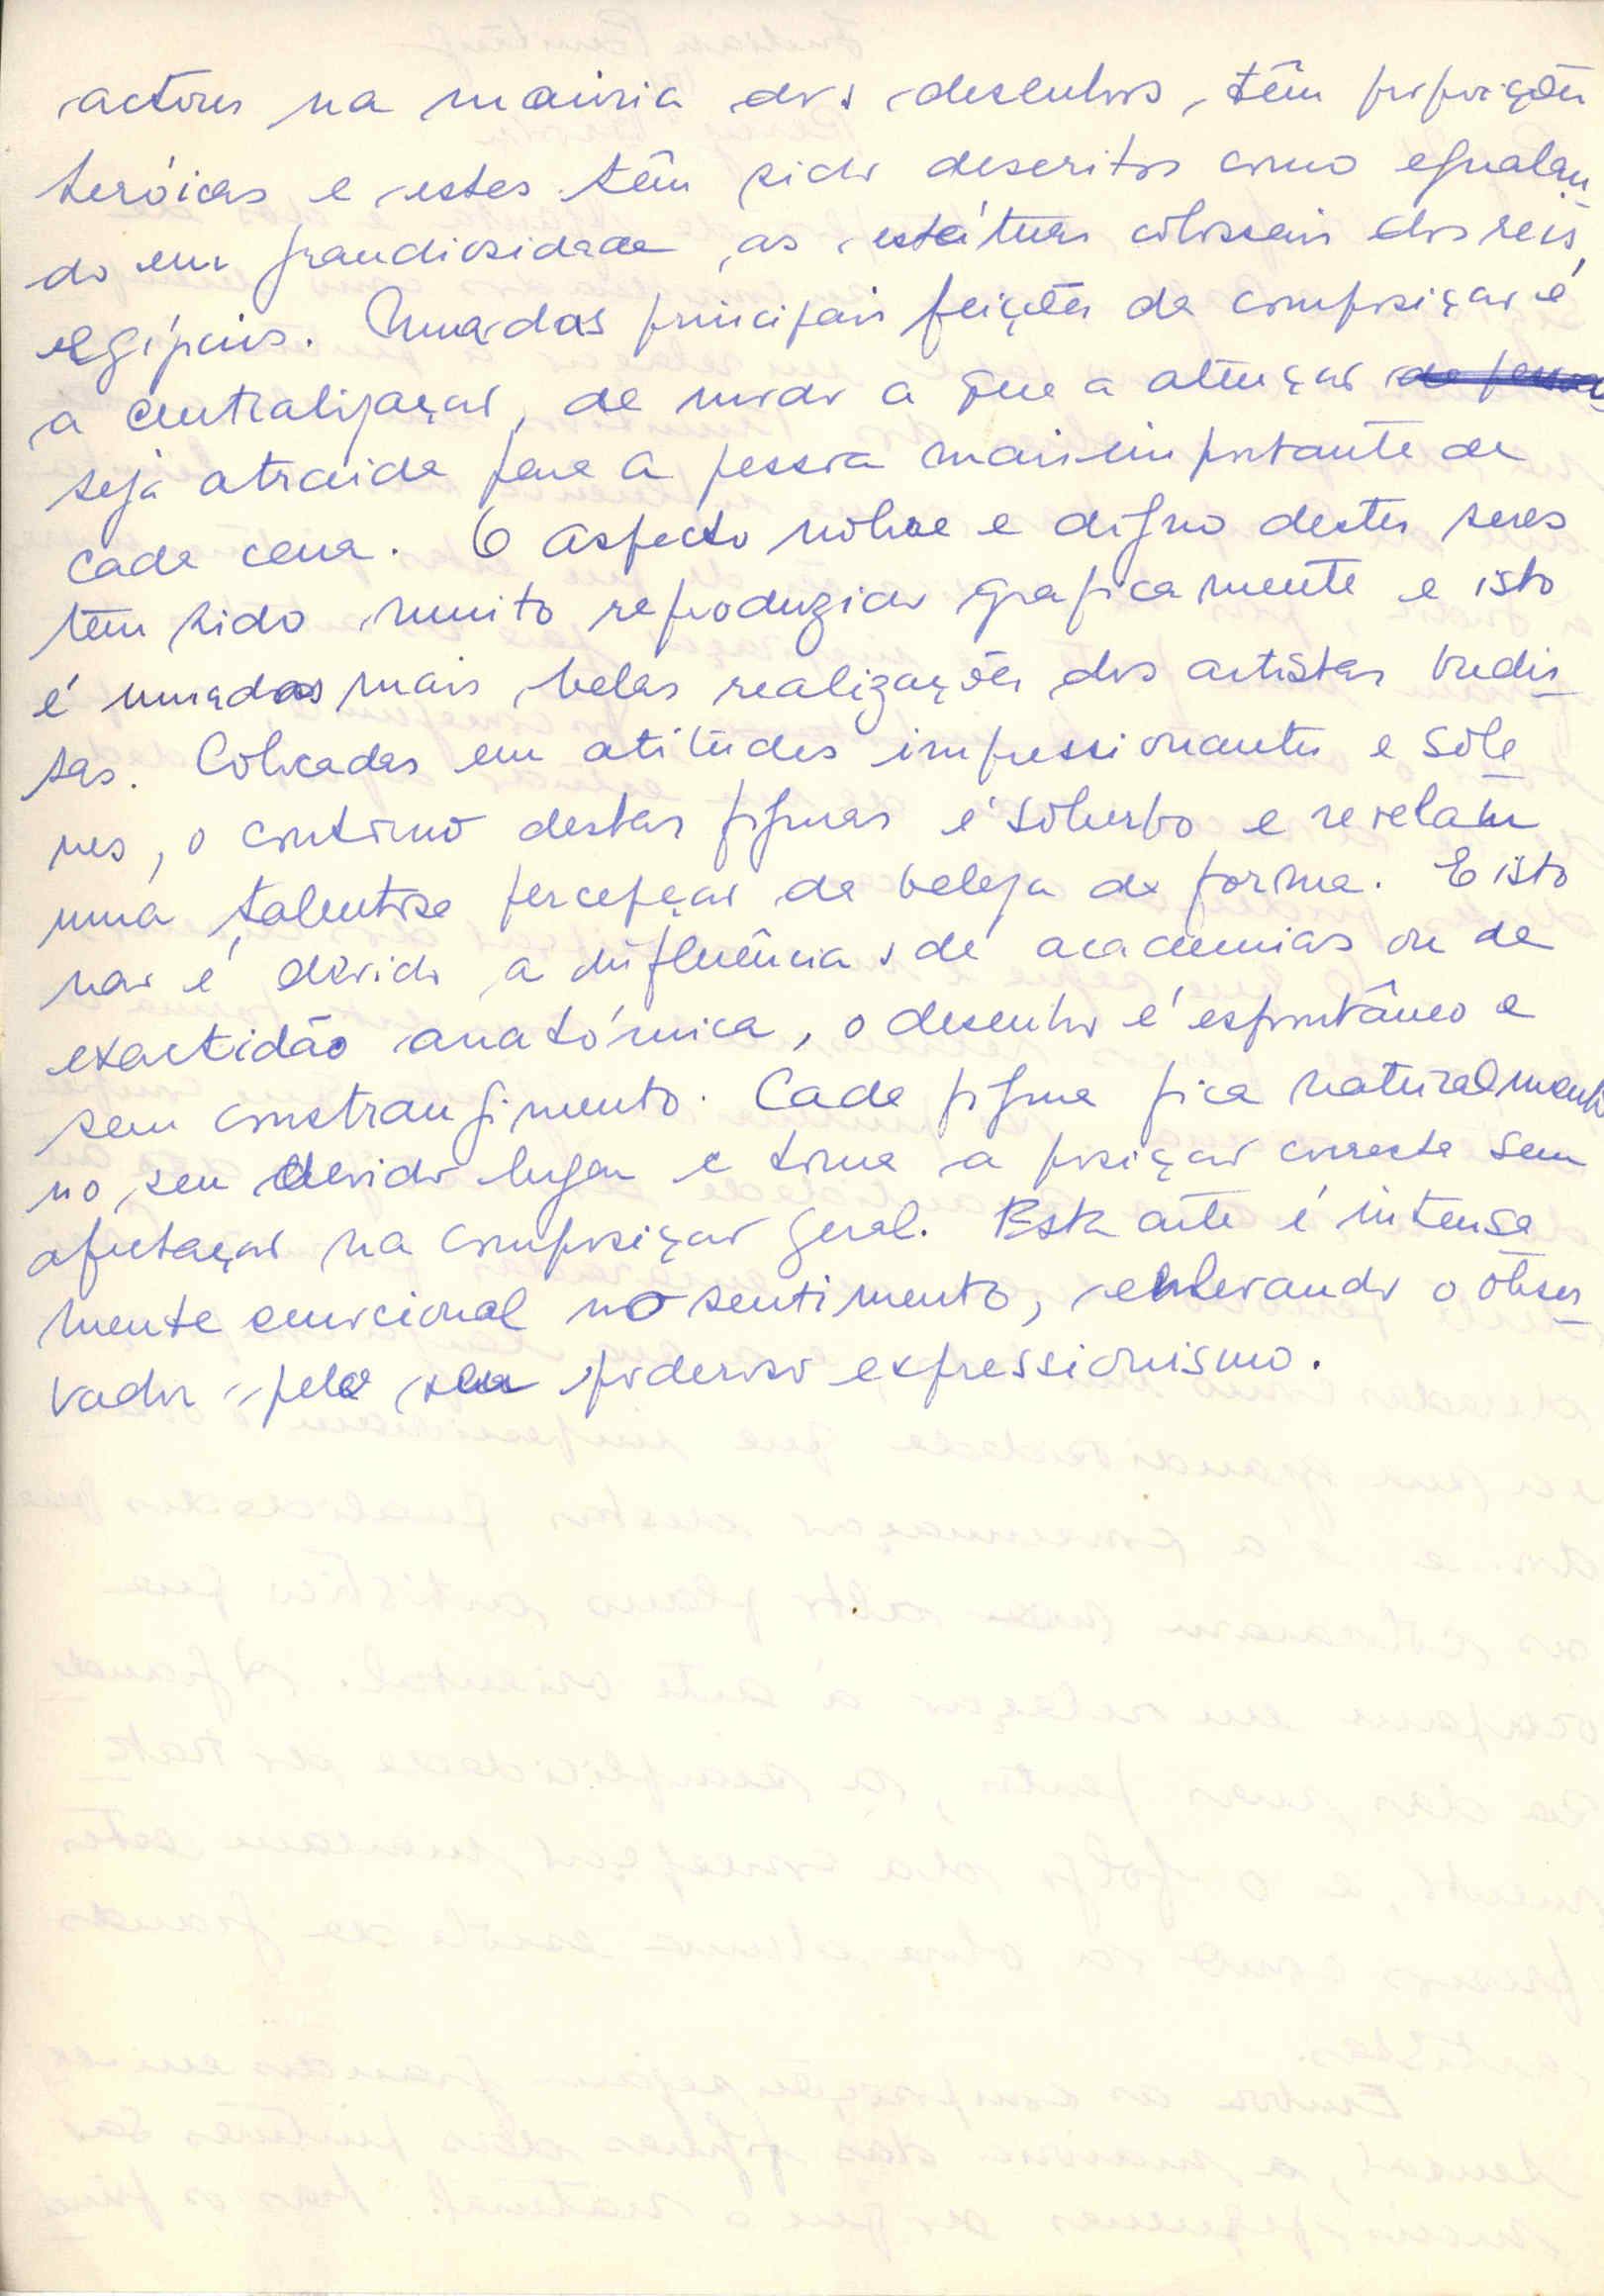 actores na maioria dos desenhos, têm proporções
heróicas e estes têm sido descritos como egualan-
do em grandiosidade as estátuas colossais dos reis
egípcios. Uma das principais feições da composição é
a centralização, de modo a que a atenção
seja atraida para a pessoa mais importante de
cada cena. O aspecto nobre e digno destes seres
têm sido muito reproduzido graficamente e isto
é uma das mais belas realizações dos artistas budis-
tas. Colocadas em atitudes impressionantes e sole-
nes, o contorno destas figuras é soberbo e revelam
uma talentosa percepção da beleza da forma. E isto
não é devido a influências de academias ou de
exactidão anatómica, o desenho é espontâneo e
sem constrangimento. Cada figura fica naturalmente
no seu devido lugar e toma a posição correcta sem
afectação na composição geral. Esta arte é intensa
mente emocional no sentimento, enlevando o obser-
vador pelo seu poderoso expressionismo.